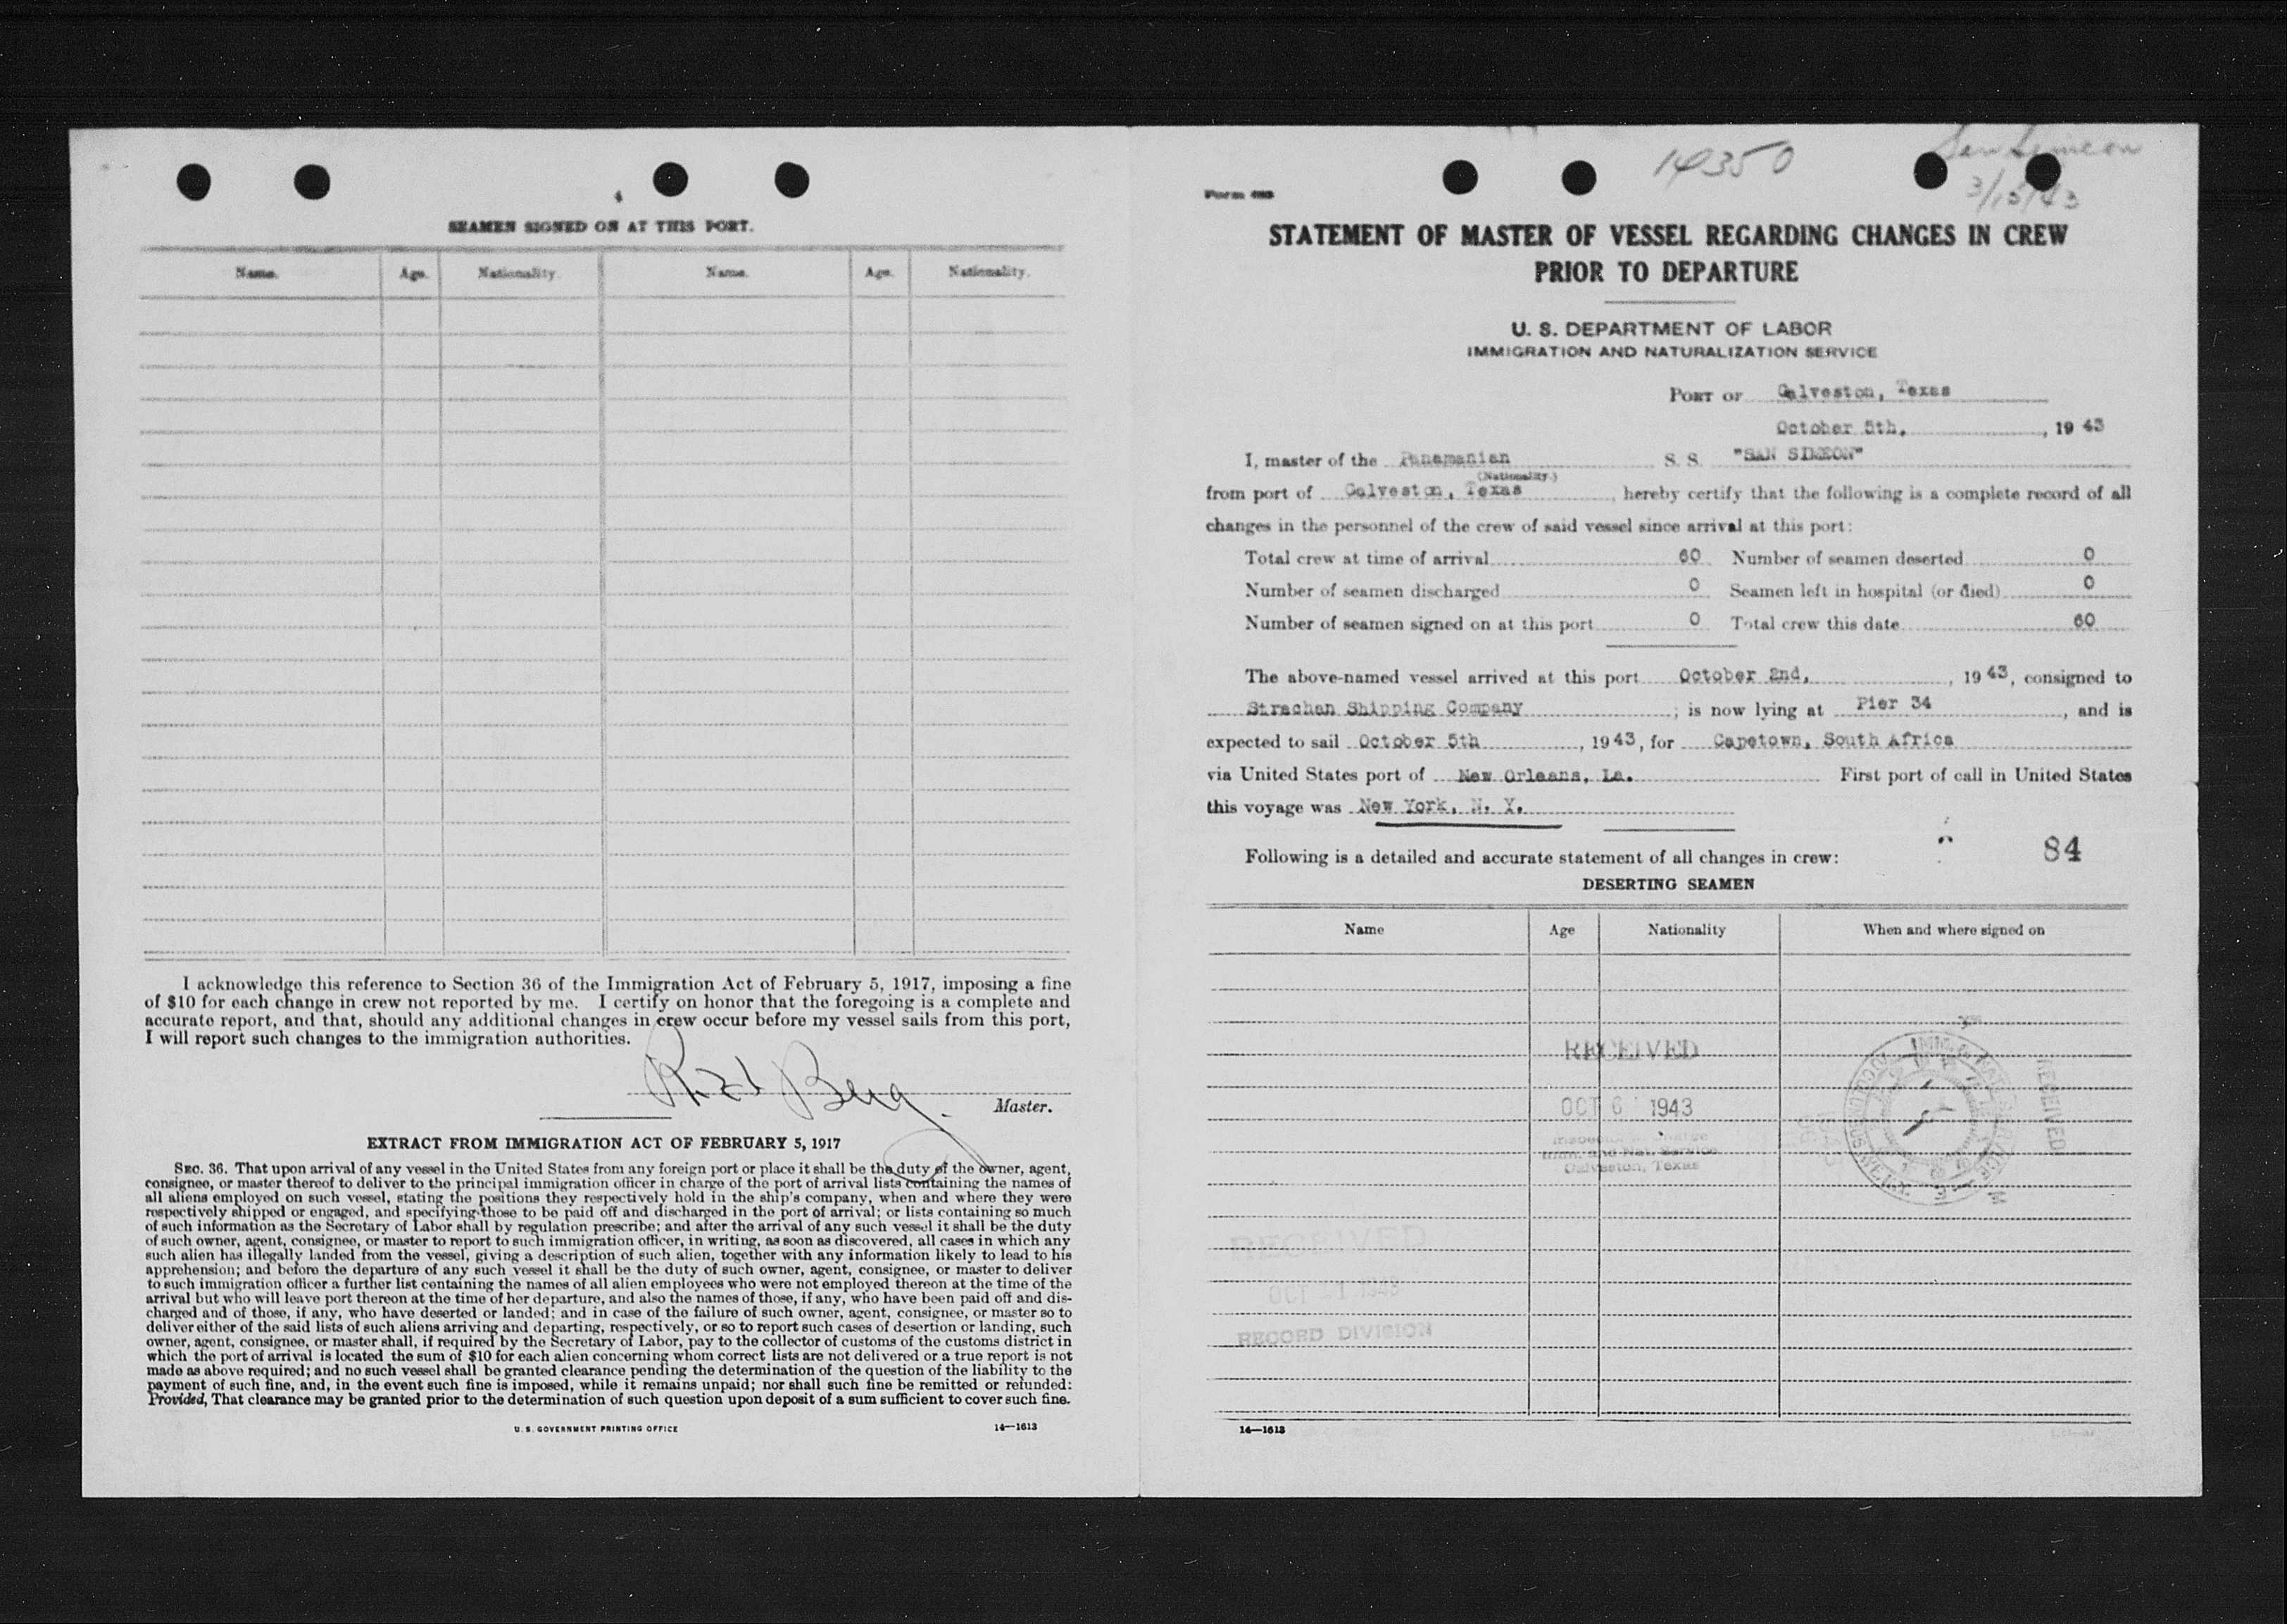 4
SEAMEN SIGNED ON AT THIS PORT.
Name. Age. Nationality. Name. Age. Nationality.
I acknowledge this reference to Section 36 of the Immigration Act of February 5, 1917, imposing a fine
of $10 for each change in crew not reported by me. I certify on honor that the foregoing is a complete and
accurate report, and that, should any additional changes in crew occur before my vessel sails from this port,
I will report such changes to the immigration authorities.
Berg
Master.
EXTRACT FROM IMMIGRATION ACT OF FEBRUARY 5, 1917
SEC. 36. That upon arrival of any vessel in the United States from any foreign port or place it shall be the duty of the owner, agent,
consignee, or master thereof to deliver to the principal immigration officer in charge of the port of arrival lists containing the names of
all aliens employed on such vessel, stating the positions they respectively hold in the ship's company, when and where they were
respectively shipped or engaged, and specifying those to be paid off and discharged in the port of arrival; or lists containing so much
of such information as the Secretary of Labor shall by regulation prescribe; and after the arrival of any such vessel it shall be the duty
of such owner, agent, consignee, or master to report to such immigration officer, in writing, as soon as discovered, all cases in which any
such alien has illegally landed from the vessel, giving a description of such alien, together with any information likely to lead to his
apprehension; and before the departure of any such vessel it shall be the duty of such owner, agent, consignee, or master to deliver
to such immigration officer a further list containing the names of all alien employees who were not employed thereon at the time of the
arrival but who will leave port thereon at the time of her departure, and also the names of those, if any, who have been paid off and dis-
charged and of those, if any, who have deserted or landed; and in case of the failure of such owner, agent, consignee, or master so to
deliver either of the said lists of such aliens arriving and departing, respectively, or so to report such cases of desertion or landing, such
owner, agent, consignee, or master shall, if required by the Secretary of Labor, pay to the collector of customs of the customs district in
which the port of arrival is located the sum of $10 for each alien concerning whom correct lists are not delivered or a true report is not
made as above required; and no such vessel shall be granted clearance pending the determination of the question of the liability to the
payment of such fine, and, in the event such fine is imposed, while it remains unpaid; nor shall such fine be remitted or refunded:
Provided, That clearance may be granted prior to the determination of such question upon deposit of a sum sufficient to cover such fine.
U. S. GOVERNMENT PRINTING OFFICE 14—1613
14350 San Simeon
3/15/43
Form
STATEMENT OF MASTER OF VESSEL REGARDING CHANGES IN CREW
PRIOR TO DEPARTURE
U. S. DEPARTMENT OF LABOR
IMMIGRATION AND NATURALIZATION SERVICE
PORT OF Galveston, Texas
October 5th, , 19 43
I, master of the Panamanian S. S. "SAN SIMEON"
(Nationality.)
from port of Galveston, Texas , hereby certify that the following is a complete record of all
changes in the personnel of the crew of said vessel since arrival at this port:
Total crew at time of arrival 60 Number of seamen deserted 0
Number of seamen discharged 0 Seamen left in hospital (or died) 0
Number of seamen signed on at this port 0 Total crew this date 60
The above-named vessel arrived at this port October 2nd, , 19 43, consigned to
Strachan Shipping Company ; is now lying at Pier 34 , and is
expected to sail October 5th , 19 43, for Capetown, South Africa
via United States port of New Orleans, La. First port of call in United States
this voyage was New York, N. Y.
84
Following is a detailed and accurate statement of all changes in crew:
DESERTING SEAMEN
Name Age Nationality When and where signed on
RECEIVED
OCT 6 1943
Inspector in Charge
Imm. and Nat. Service
Galveston, Texas
RECEIVED
RECEIVED
RECORD DIVISION
14—1613